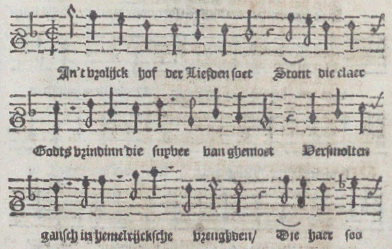 In't vrolijck hof der Liefden soet Stont die claer
Godts vrindinn' die supver van ghemoet Versmolten
gansch in hemelrijcksche vreughden/ Die haer soo